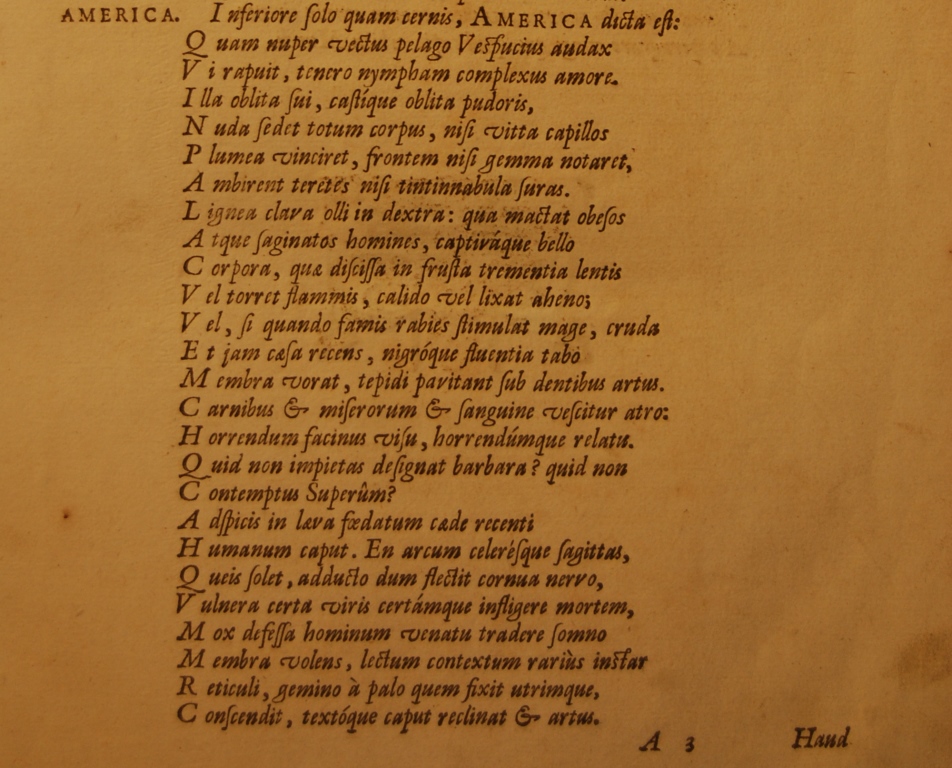 AMERICA. Inferiore ſolo quam cernis, AMERICA dicta eſt:
Quam nuper vectus pelago Veſpucius audax
Vi rapuit, tenero nympham complexus amore.
Illa oblita ſui, caſtíque oblita pudoris,
Nuda ſedet totum corpus, niſi vitta capillos
Plumea vinciret, frontem niſi gemma notaret,
Ambirent teretes niſi tintinnabula ſuras.
Lignea clava olli in dextra: qua mactat obeſos
Atque ſaginatos homines, captiváque bello
Corpora, quæ diſciſſa in fruſta trementia lentis
Vel torret flammis, calido vel lixat aheno;
Vel, ſi quando famis rabies ſtimulat mage, cruda
Et jam cæſa recens, nigróque fluentia tabo
Membra vorat, tepidi pavitant ſub dentibus artus.
Carnibus & miſerorum & ſanguine veſcitur atro:
Horrendum facinus viſu, horrendúmque relatu.
Quid non impietas deſignat barbara? quid non
Contemptus Superûm?
Adſpicis in læva fœdatum cæde recenti
Humanum caput. En arcum celeréſque ſagittas,
Queis ſolet, adducto dum flectit cornua nervo,
Vulnera certa viris certámque infligere mortem,
Mox defeſſa hominum venatu tradere ſomno
Membra volens, lectum contextum rariùs inſtar
Reticuli, gemino à palo quem fixit utrimque,
Conſcendit, textóque caput reclinat & artus.
A 3 Haud